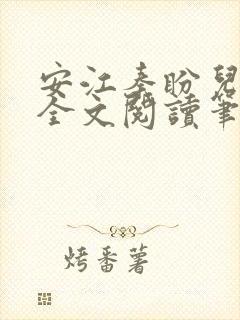 安江秦盼兒
全文閱讀筆
烤番薯